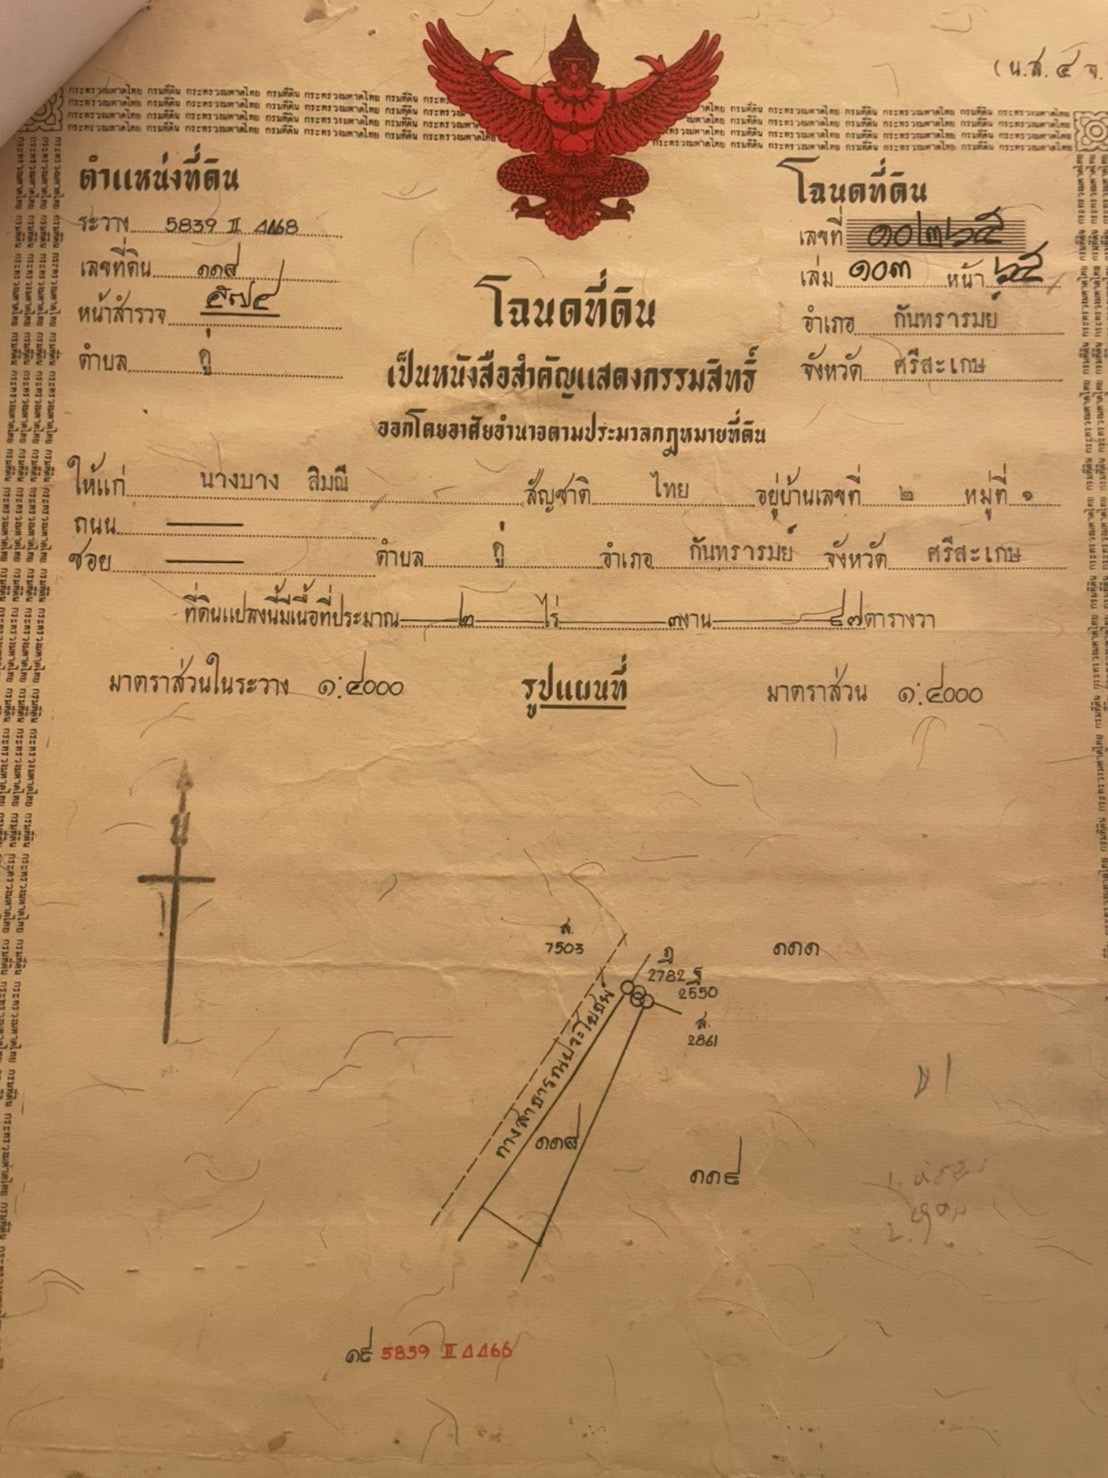 (น.ส. ๔ จ.
ตำแหน่งที่ดิน
ระวาง 5839 II 4468
เลขที่ดิน ๑๑๘
หน้าสำรวจ ๕๗๔
ตำบล คู่
โฉนดที่ดิน
เลขที่ ๑๐๒๖๕
เล่ม ๑๐๓ หน้า ๖๕
อำเภอ กันทรารมย์
จังหวัด ศรีสะเกษ
โฉนดที่ดิน
เป็นหนังสือสำคัญแสดงกรรมสิทธิ์
ออกโดยอาศัยอำนาจตามประมวลกฎหมายที่ดิน
ให้แก่ นางบาง สิมณี สัญชาติ ไทย อยู่บ้านเลขที่ ๒ หมู่ที่ ๑
ถนน
ซอย ตำบล คู่ อำเภอ กันทรารมย์ จังหวัด ศรีสะเกษ
ที่ดินแปลงนี้มีเนื้อที่ประมาณ ๒ ไร่ ๓ งาน ๔๗ ตารางวา
มาตราส่วนในระวาง ๑:๔๐๐๐ รูปแผนที่ มาตราส่วน ๑:๔๐๐๐
น
ส.
7503
2782
2550
ส.
2861
๑๑๑
ทางสาธารณประโยชน์
๑๑๘
๑๑๙
๑๙ 5839 II 4466